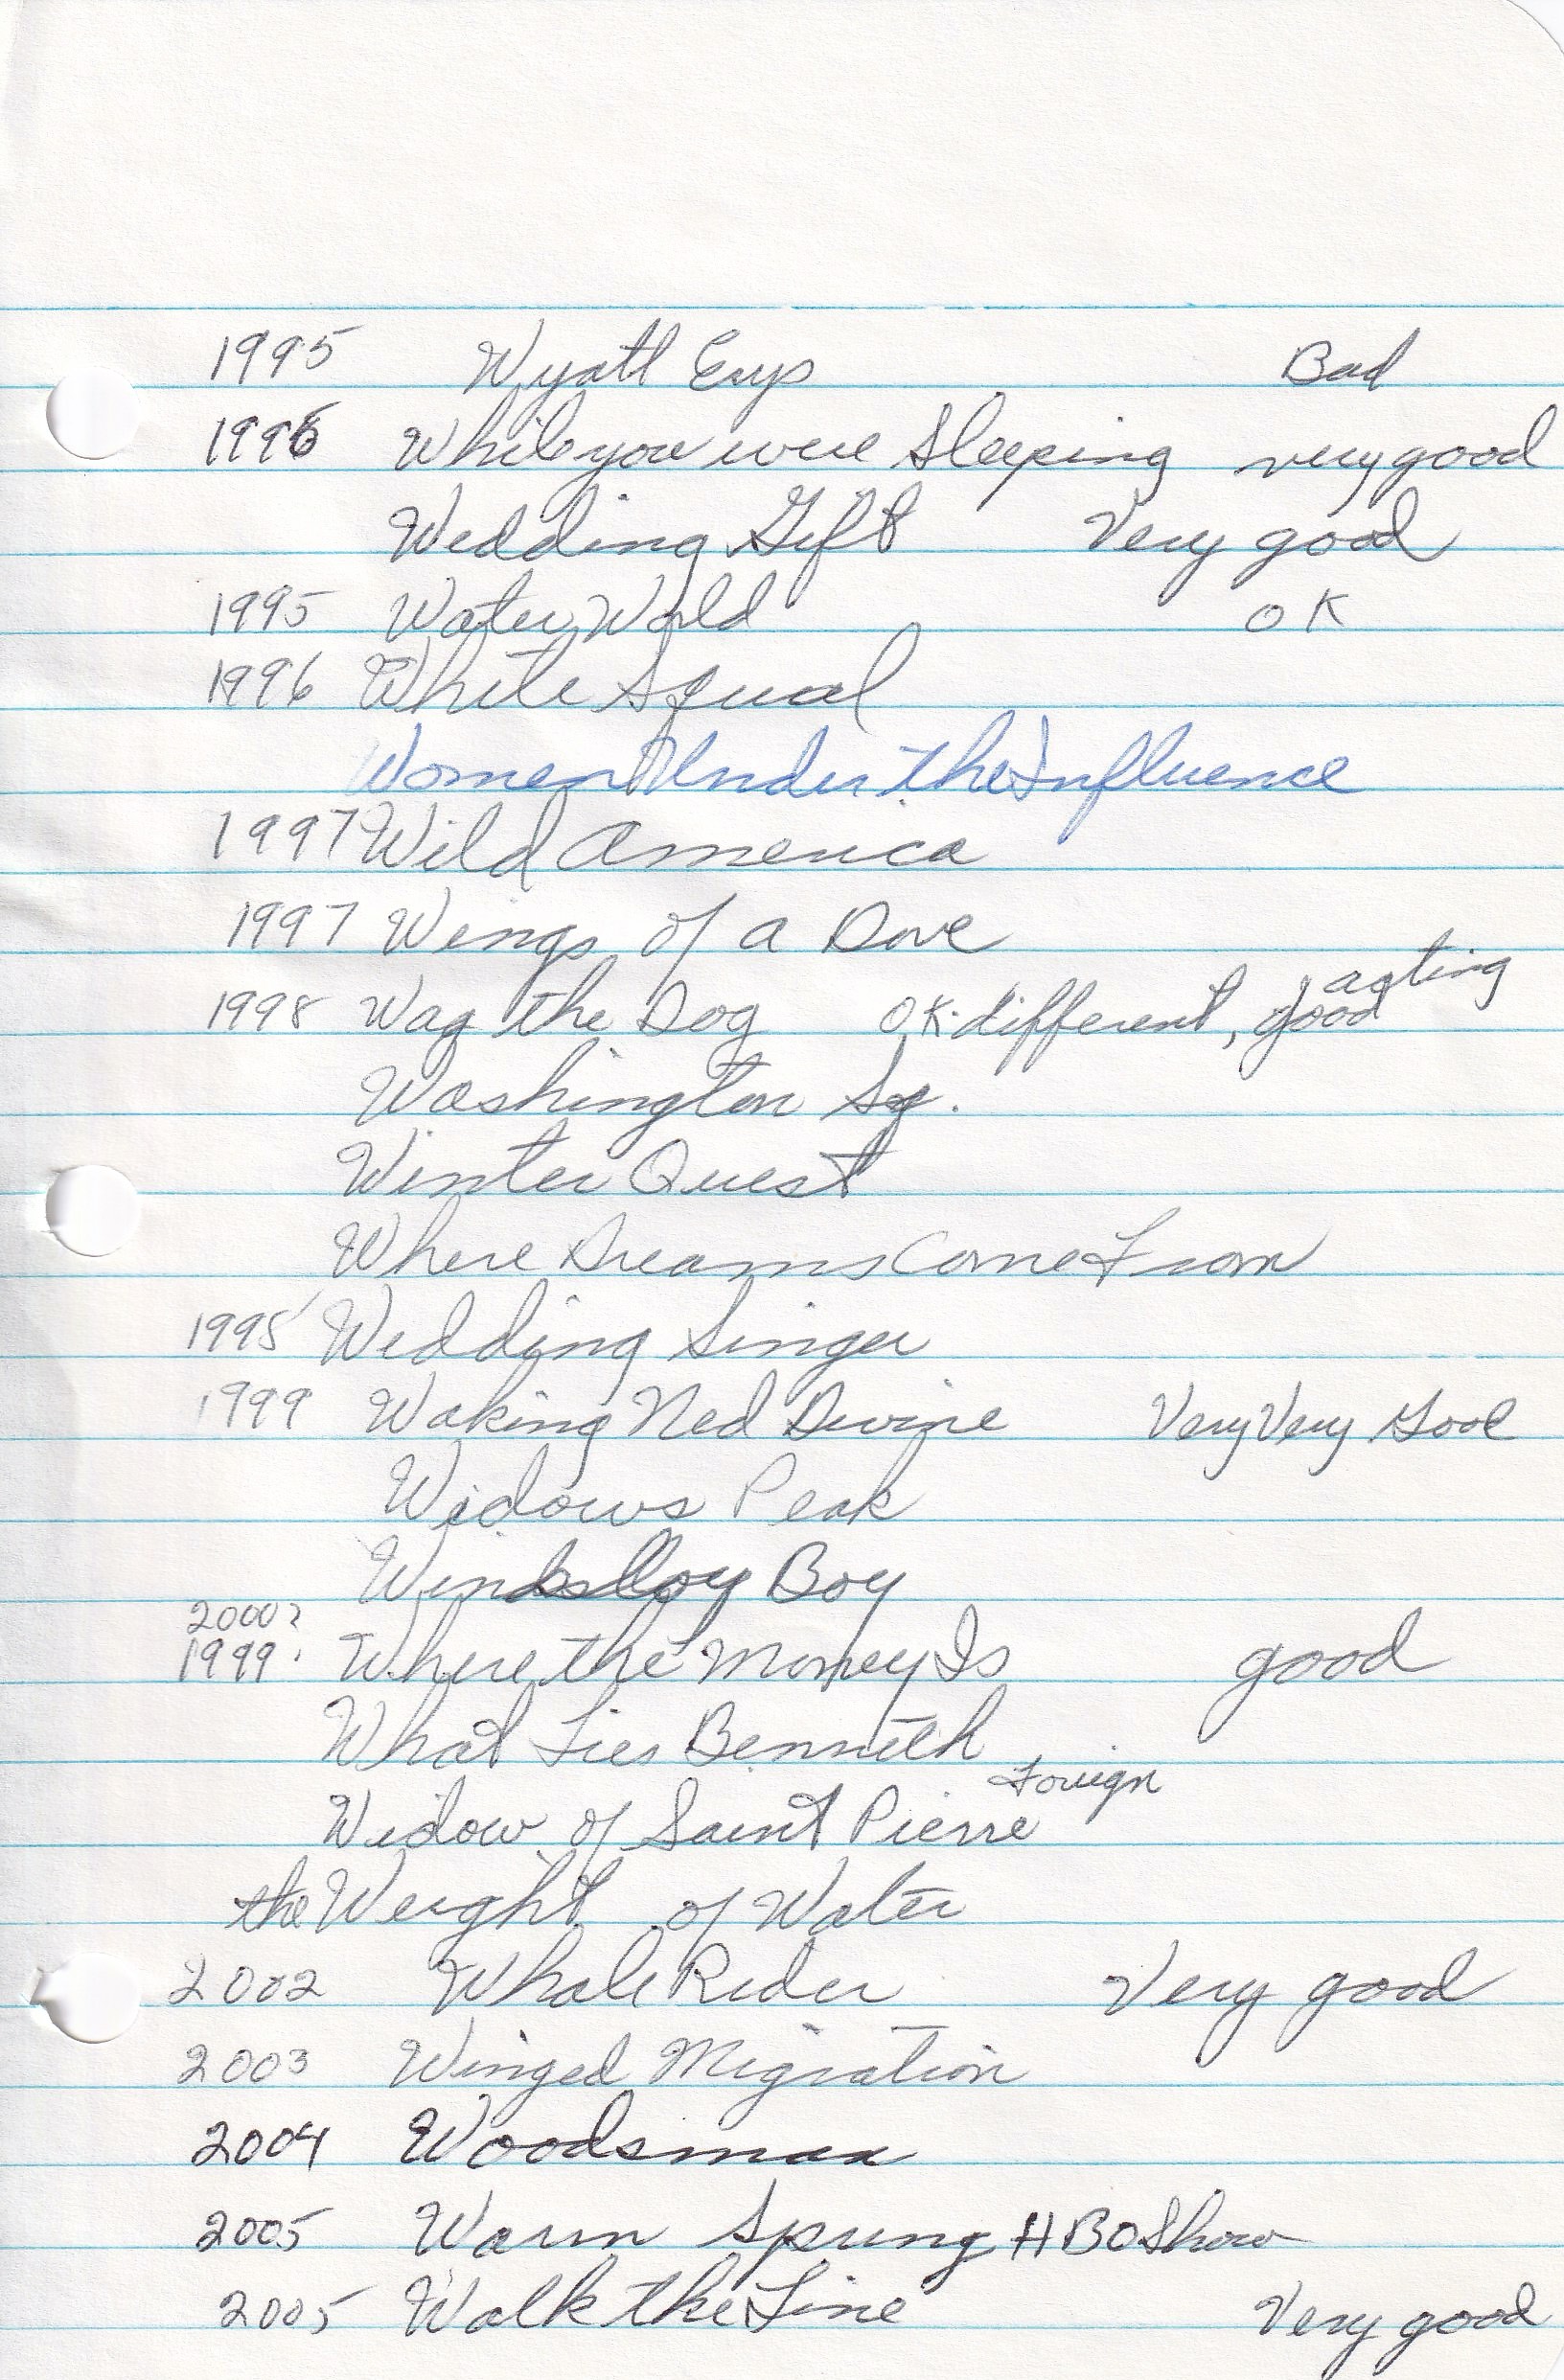 1995 Wyatt Erys Bad
1996 While you were Sleeping very good
Wedding Gift Very good
1995 Water World OK
1996 White Squal
Women Under the Influence
1997 Wild America
1997 Wings of a Dove
1998 Wag the Dog OK. different, good acting
Washington Sq.
Winter Quest
Where Dreams Come From
1998 Wedding Singer
1999 Waking Ned Devine Very Very Good
Widows Peak
Boy
2000?
1999. Where the Money Is good
What Lies Benneth
Foreign
Widow of Saint Pierre
the Weight of Water
2002 Whale Rider Very good
2003 Winged Migration
2004 Woodsman
2005 Warm Spring HBO Show
2005 Walk the Line Very good